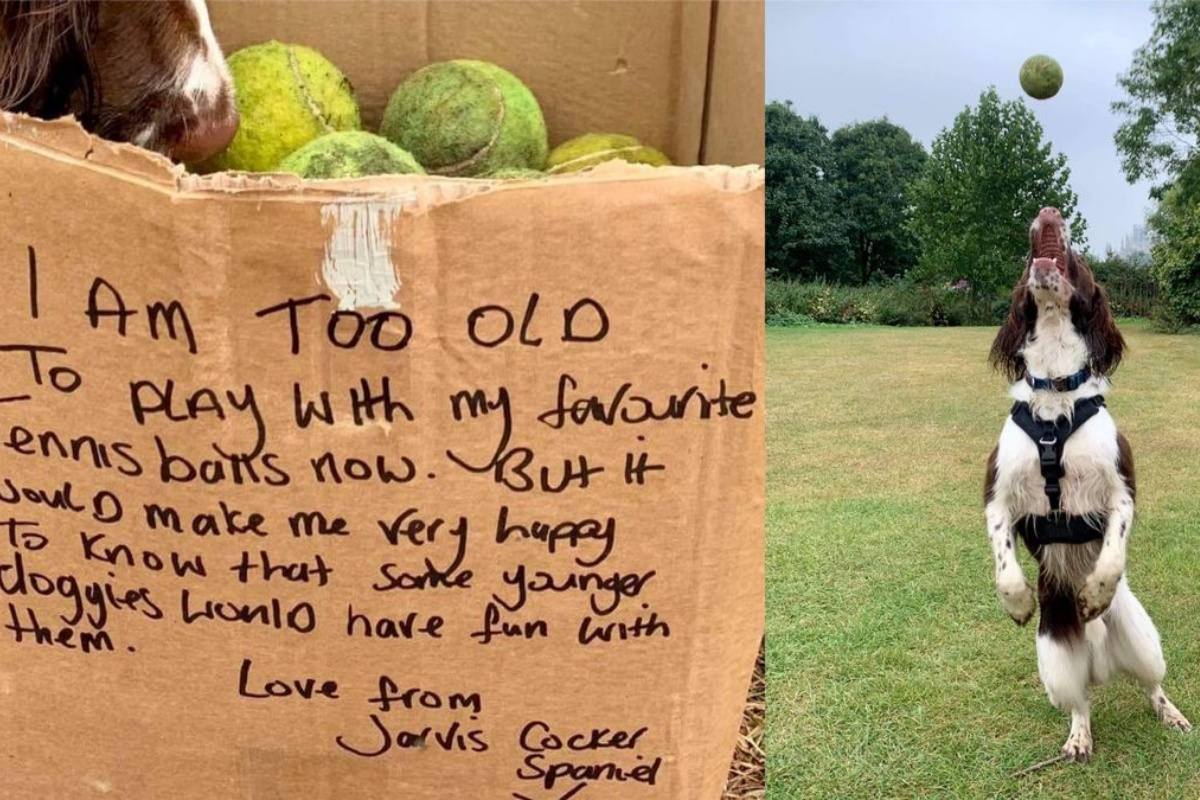 I AM TOO OLD
To PLAY with my favourite
ennis balls now. But it
would make me very happy
To know that some younger
doggies would have fun with
them.
Love from
Jarvis Cocker
Spaniel